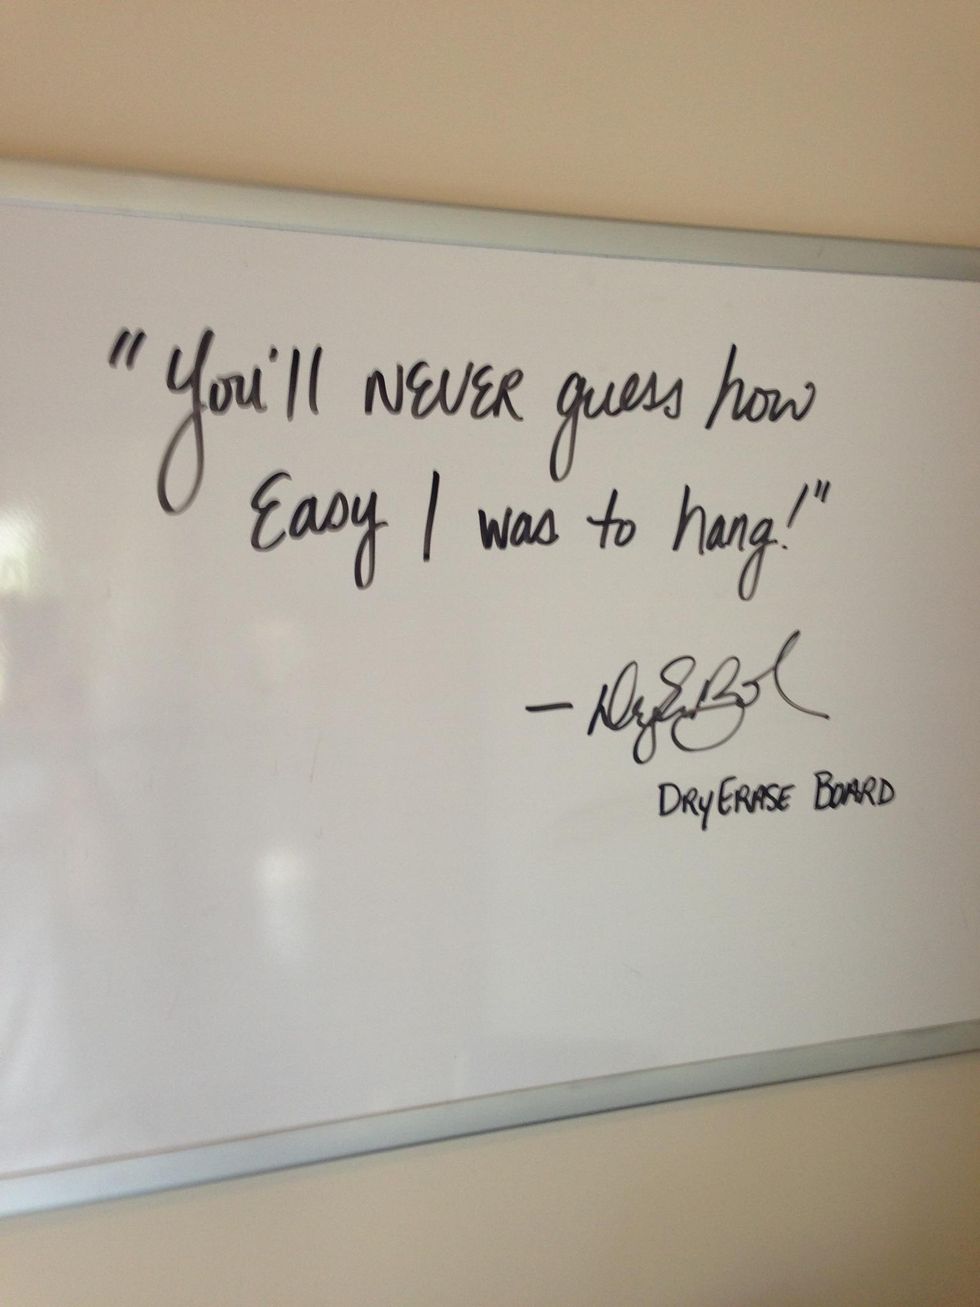 "You'll NEVER guess how
Easy I was to hang!"
—
DRY ERASE BOARD